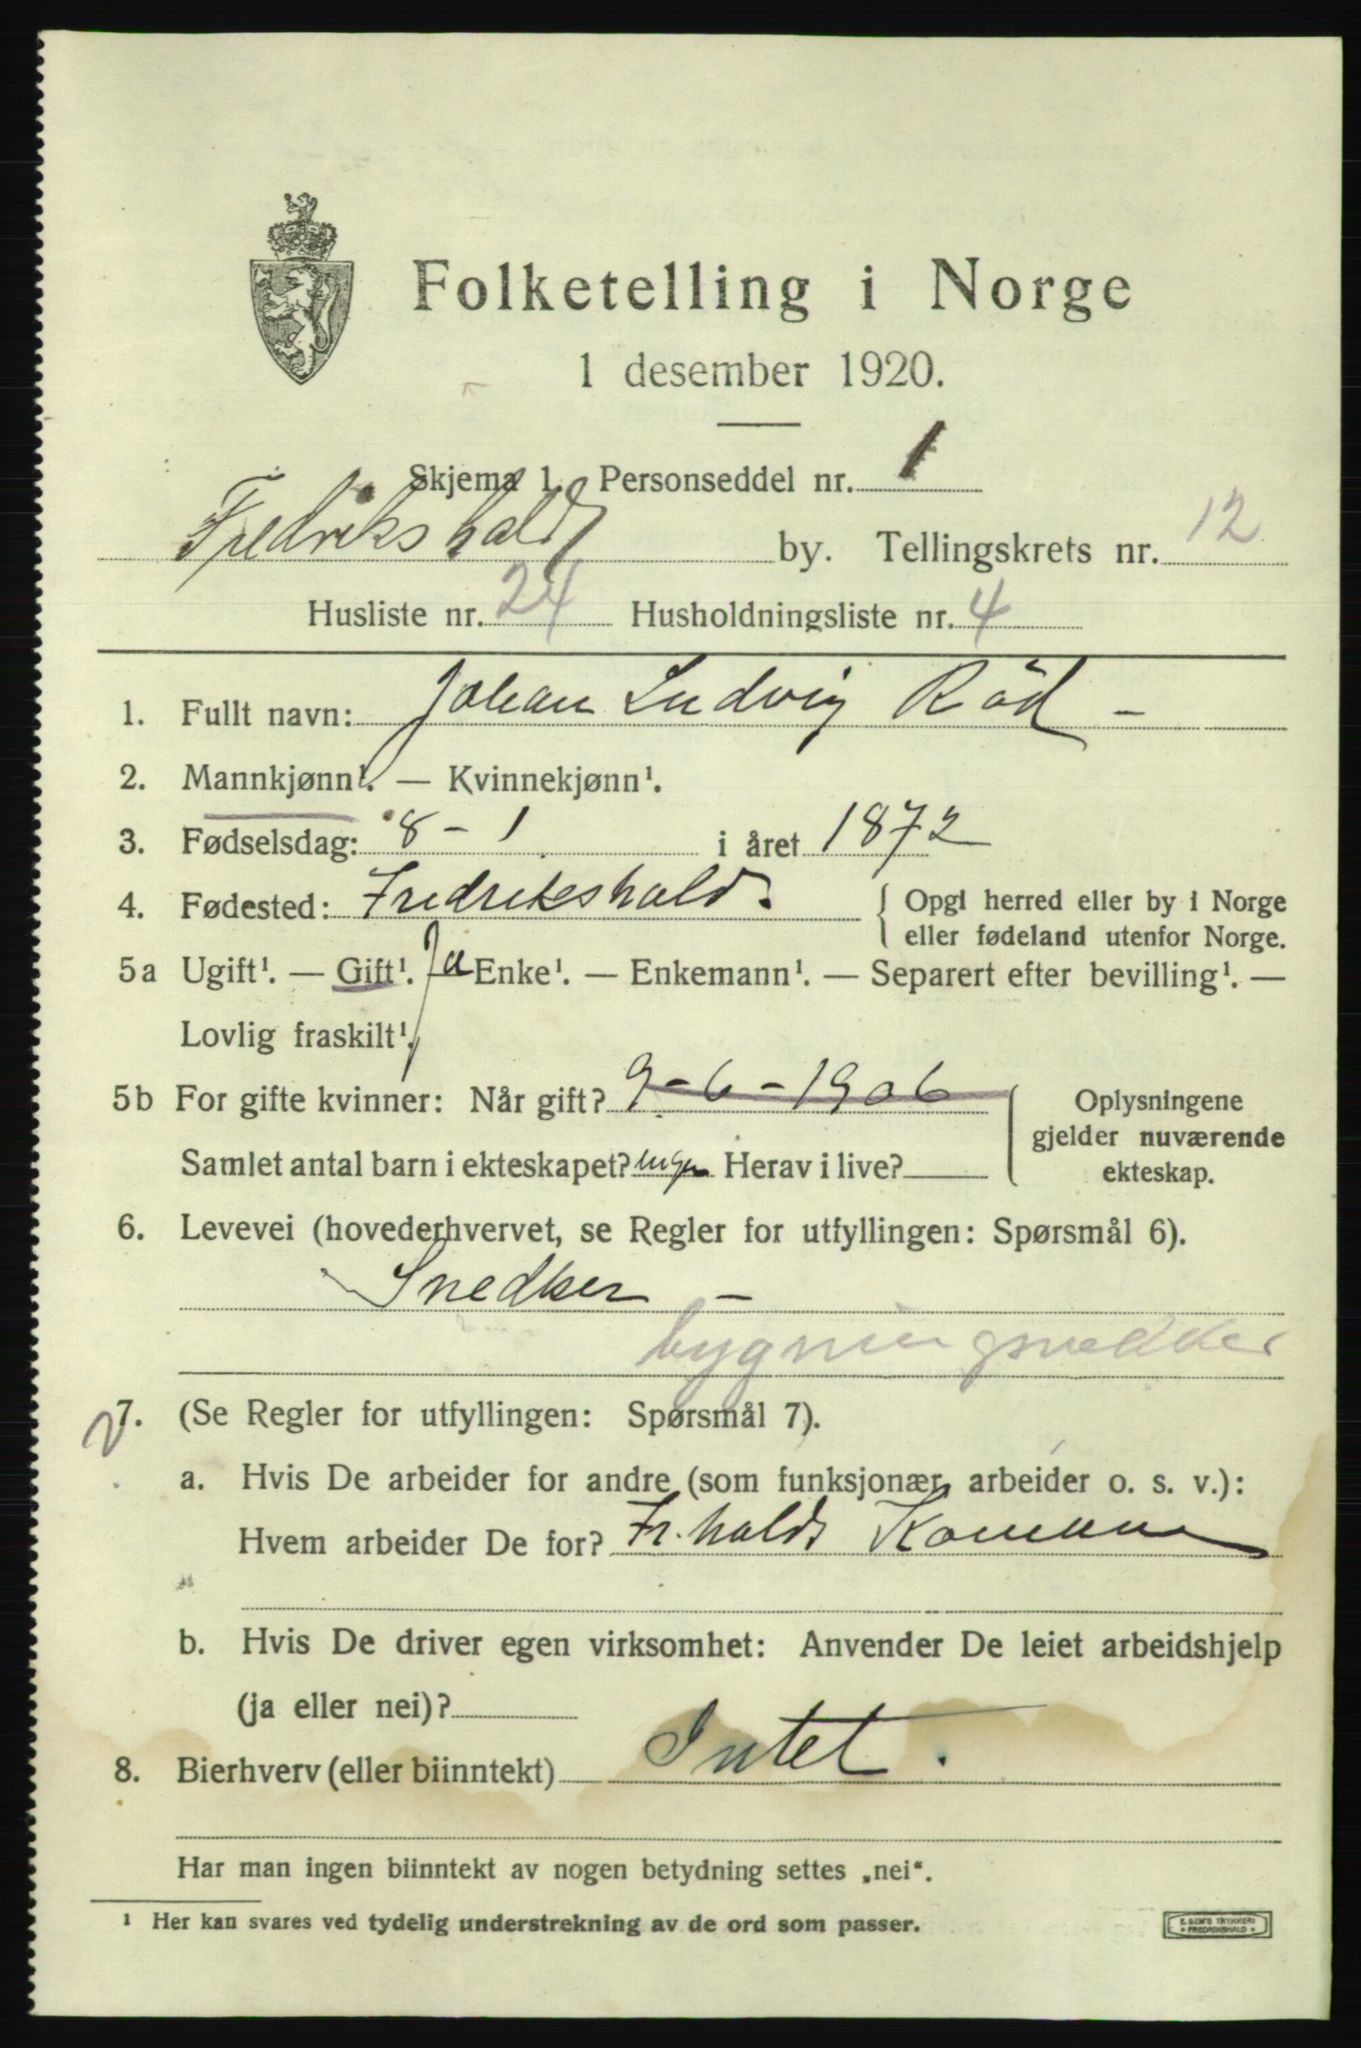 Folketelling i Norge
1 desember 1920.
Skjema 1. Personseddel nr. 1
Fredrikshald by. Tellingskrets nr. 12
Husliste nr. 24 Husholdningsliste nr. 4
1. Fullt navn: Johan Ludvig Röd –
2. Mannkjønn¹. — Kvinnekjønn¹.
3. Fødselsdag: 8 – 1 i året 1872
4. Fødested: Fredrikshald. { Opgi herred eller by i Norge
eller fødeland utenfor Norge.
5a Ugift¹. — Gift¹. Ja Enke¹. — Enkemann¹. — Separert efter bevilling¹. —
Lovlig fraskilt¹.
5b For gifte kvinner: Når gift? 9-6-1906 Oplysningene
gjelder nuværende
Samlet antal barn i ekteskapet? ingen Herav i live? ekteskap.
6. Levevei (hovederhvervet, se Regler for utfyllingen: Spørsmål 6).
Snedker –
bygningsnedker
7. (Se Regler for utfyllingen: Spørsmål 7).
a. Hvis De arbeider for andre (som funksjonær, arbeider o. s. v.):
Hvem arbeider De for? Fr.halds Komune
b. Hvis De driver egen virksomhet: Anvender De leiet arbeidshjelp
(ja eller nei)?
8. Bierhverv (eller biinntekt) Intet.
Har man ingen biinntekt av nogen betydning settes „nei“.
¹ Her kan svares ved tydelig understrekning av de ord som passer.
E. SEM'S TRYKKERI
• FREDRIKSHALD •